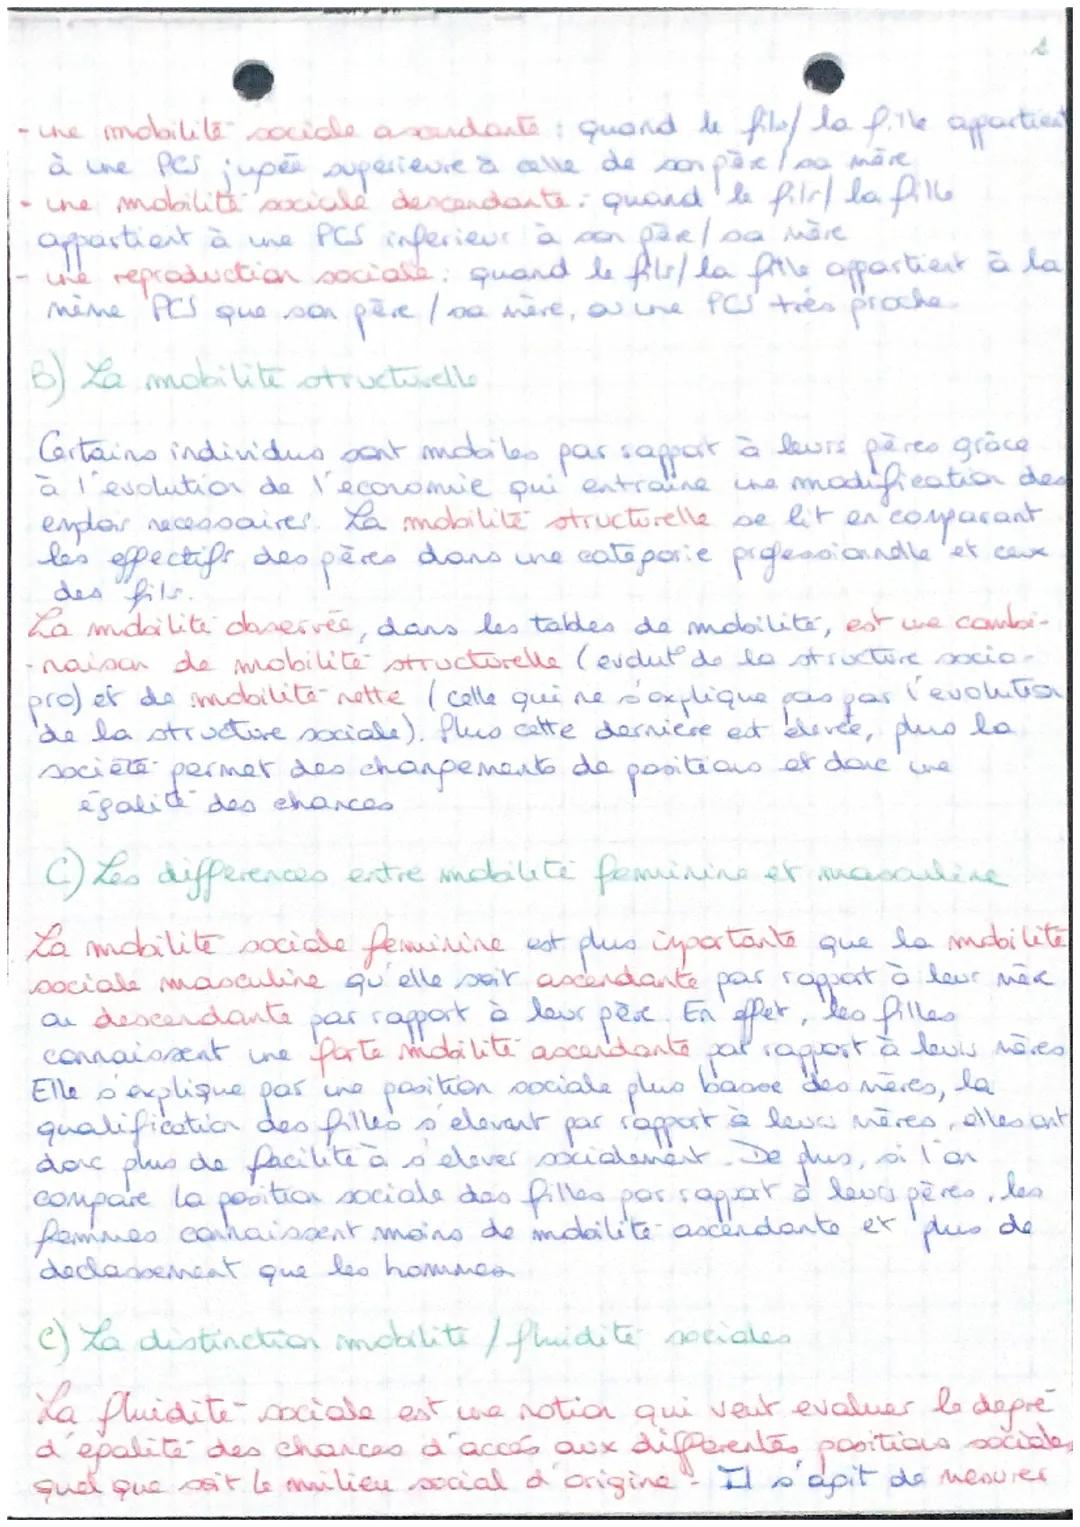 - une mobilité sociale ascendante : quand le fils/ la fille appartient
à une PCS jugée supérieure à celle de son père / sa mère
- une mobilité sociale descendante : quand le fils/ la fille
appartient à une PCS inferieur à son père/ sa mère
- une reproduction sociale : quand le fils/ la fille appartient à la
même PCS que son père / sa mère, ou une PCS très proche.
B) La mobilité structurelle
Certains individus sont mobiles par rapport à leurs pères grâce
à l'evolution de l'économie qui entraine une modification des
emplois necessaires. La mobilité structurelle se lit en comparant
les effectifs des pères dans une catégorie professionnelle et ceux
des fils.
La mobilité observée, dans les tables de mobilité, est une combi-
-naison de mobilité structurelle (evolut° de la structure socio-
pro) et de mobilité nette (celle qui ne s'explique pas par l'evolution
de la structure sociale). Plus cette dernière est élevée, plus la
société permet des changements de positions et donc une
égalité des chances
C) Les differences entre mobilité feminine et masculine
La mobilité sociale feminine est plus importante que la mobilité
sociale masculine qu'elle soit ascendante par rapport à leur mère
ou descendante par rapport à leur père. En effet, les filles
connaissent une forte mobilité ascendante par rapport à leurs mères
Elle s'explique par une position sociale plus basse des mères, la
qualification des filles s'elevant par rapport à leurs mères, elles ont
donc plus de facilité à s'elever socialement. De plus, si l'on
compare la position sociale des filles par rapport à leurs pères, les
femmes connaissent moins de mobilité ascendante et plus de
declassement que les hommes
C) La distinction mobilité / fluidité sociales
La fluidité sociale est une notion qui veut evaluer le degré
d'égalité des chances d'accés aux différentes positions sociales,
quel que soit le milieu social d'origine. Il s'agit de mesurer